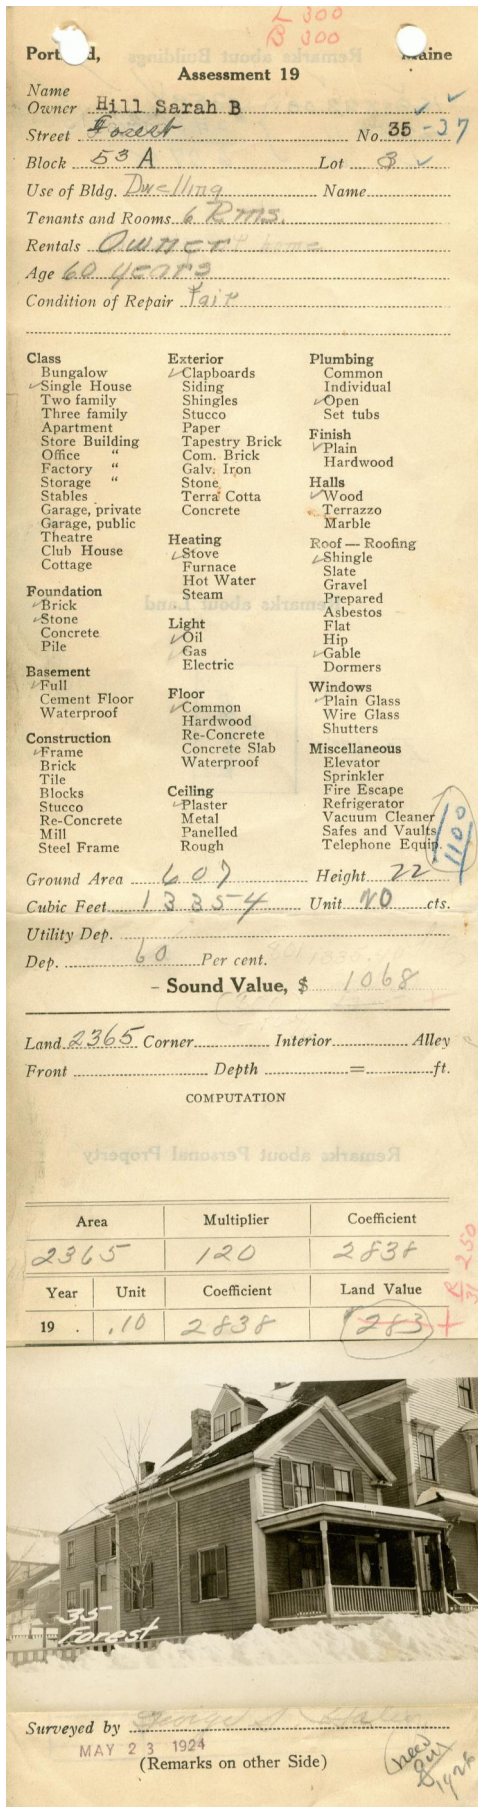 L 300
B 300
Remarks about Buildings
Portland, Maine
Assessment 19
Name
Owner Hill Sarah B
Street Forest No. 35-37
Block 53 A Lot 8
Use of Bldg. Dwelling Name
Tenants and Rooms 6 Rms.
Rentals Owner home
Age 60 years
Condition of Repair Fair
Class
Bungalow
Single House
Two family
Three family
Apartment
Store Building
Office "
Factory "
Storage "
Stables
Garage, private
Garage, public
Theatre
Club House
Cottage
Foundation
Brick
Stone
Concrete
Pile
Basement
Full
Cement Floor
Waterproof
Construction
Frame
Brick
Tile
Blocks
Stucco
Re-Concrete
Mill
Steel Frame
Exterior
Clapboards
Siding
Shingles
Stucco
Paper
Tapestry Brick
Com. Brick
Galv. Iron
Stone
Terra Cotta
Concrete
Heating
Stove
Furnace
Hot Water
Steam
Light
Oil
Gas
Electric
Floor
Common
Hardwood
Re-Concrete
Concrete Slab
Waterproof
Ceiling
Plaster
Metal
Panelled
Rough
Plumbing
Common
Individual
Open
Set tubs
Finish
Plain
Hardwood
Halls
Wood
Terrazzo
Marble
Roof — Roofing
Shingle
Slate
Gravel
Prepared
Asbestos
Flat
Hip
Gable
Dormers
Windows
Plain Glass
Wire Glass
Shutters
Miscellaneous
Elevator
Sprinkler
Fire Escape
Refrigerator
Vacuum Cleaner
Safes and Vaults
Telephone Equip.
1100
Remarks about Land
Ground Area 607 Height 22
Cubic Feet 13354 Unit 20 cts.
Utility Dep.
Dep. 60 Per cent.
Sound Value, $ 1068
Land 2365 Corner Interior Alley
Front Depth = ft.
COMPUTATION
Remarks about Personal Property
Area Multiplier Coefficient
2365 120 2838
Year Unit Coefficient Land Value
19 . .10 2838 283
R 250
31
35
Forest
Surveyed by
MAY 23 1924
(Remarks on other Side)
new
1926